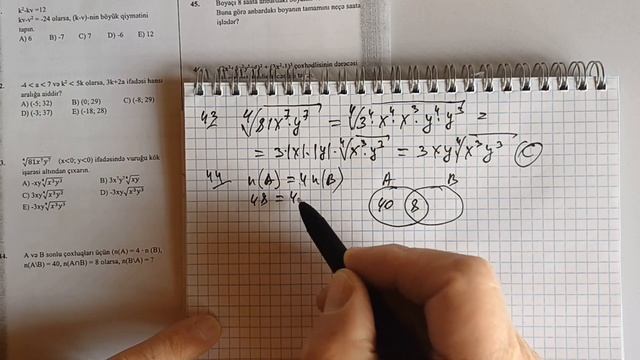 k²-kv =12
kv-v² = -24 olarsa, (k-v)-nin böyük qiymətini
tapın.
A) 6 B) -7 C) 7 D) -6 E) 12
-4 < a < 7 və k² < 5k olarsa, 3k+2a ifadəsi hansı
aralığa aiddir?
A) (-5; 32) B) (0; 29) C) (-8; 29)
D) (-3; 37) E) (-18; 28)
3. ⁴√81x⁷y⁷ (x<0; y<0) ifadəsində vuruğu kök
işarəsi altından çıxarın.
A) -xy⁴√x³y³ B) 3x³y³⁴√xy
C) 3xy⁴√x³y³ D) -3xy√x³y³
E) -3xy⁴√x³y³
A və B sonlu çoxluqları üçün (n(A) = 4 · n (B),
n(A\B) = 40, n(A∩B) = 8 olarsa, n(B\A) = ?
45. Boyaçı 8 saata anbardakı boyanın
Buna görə anbardakı boyanın tamamını neçə saata
işlədər?
43 ⁴√81x⁷·y⁷ = ⁴√3⁴·x⁴·x³·y⁴·y³ =
= 3·|x|·|y|·⁴√x³·y³ = 3xy⁴√x³y³ C
44 n(A) = 4n(B) A B
48 = 4 40 8